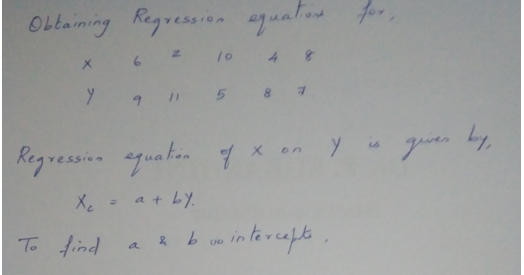 Obtaining Regression equation for,
X 6 2 10 4 8
Y 9 11 5 8 7
Regression equation of X on Y is given by,
Xc = a + bY.
To find a & b intercepts,